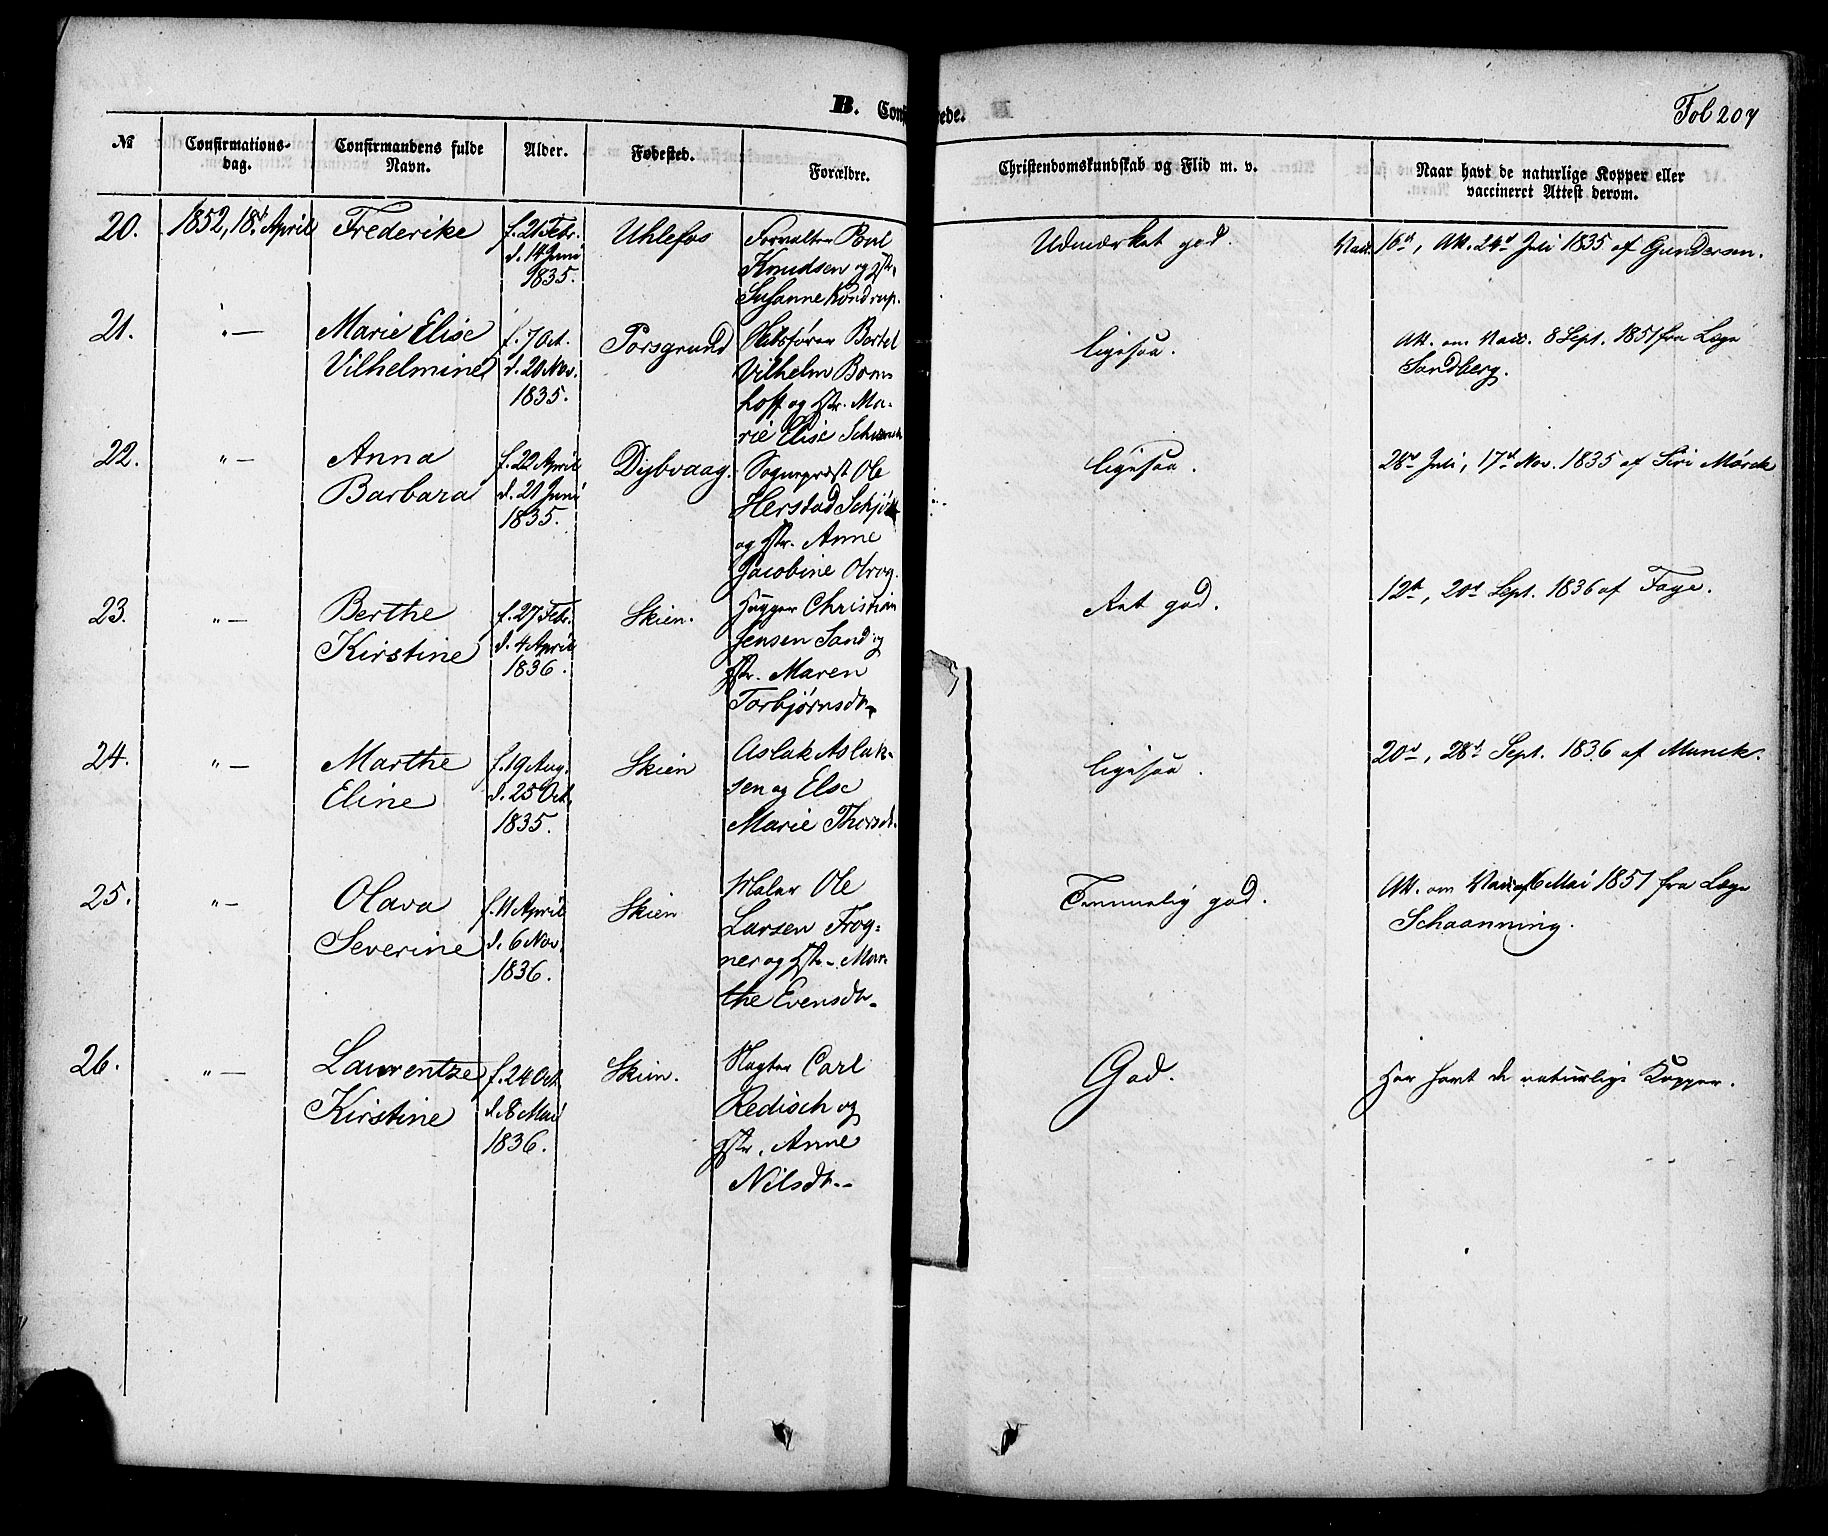 B. Conf
ede.
Fol 207
№
Confirmations-
dag.
Confirmandens fulde
Navn.
Alder.
Fødested.
Forældre.
Christendomskundskab og Flid m. v.
Naar havt de naturlige Kopper eller
vaccineret Attest derom.
20.
1852, 18d April
Frederike
f. 21 Febr.
d. 14 Juni
1835.
Uhlefos
Forvalter Poul
Knudsen og Hstr.
Susanne Kondrup.
Udmærket god.
Vacc. 16d, Att. 24d Juli 1835 af Gundersen.
21.
〃 —
Marie Elise
Vilhelmine
f. 7 Oct.
d. 20 Nov.
1835.
Porsgrund
Bertel
Vilhelm Born-
hoff og Hstr. Ma-
rie Elise
ligesaa.
Att. om Vacc. 8 Sept. 1851 fra Læge
Sandberg.
22.
〃 —
Anna
Barbara
f. 22 April
d. 21 Juni
1835.
Dybvaag.
Sogneprest Ole
Herstad Schjøtt
og Hstr. Anne
Jacobine Olrog.
ligesaa.
28d Juli, 17d Nov. 1835 af Siri Mørck
23.
〃 —
Berthe
Kirstine
f. 27 Febr.
d. 4 April
1836.
Skien.
Christian
Jensen Sand og
Hstr. Maren
Torbjørnsdtr.
Ret god.
12te, 20d Sept. 1836 af Faye.
24.
〃 —
Marthe
Eline
f. 19 Aug.
d. 25 Oct.
1835.
Skien
Aslak Aslak-
sen og Else
Marie Thorsdr.
ligesaa.
20d, 28d Sept. 1836 af Munck.
25.
〃 —
Olava
Severine
f. 11 April
d. 6 Nov.
1836.
Skien
Maler Ole
Larsen Frog-
ner og Hstr. Mar-
the Evensdtr.
Temmelig god.
Att. om Vacc. af 6 Mai 1851 fra Læge
Schaanning.
26.
〃 —
Laurentze
Kirstine
f. 24 Oct.
d. 8 Mai
1836.
Skien.
Slagter Carl
Redisch og
Hstr. Anne
Nilsdtr.
God.
Har havt de naturlige Kopper.